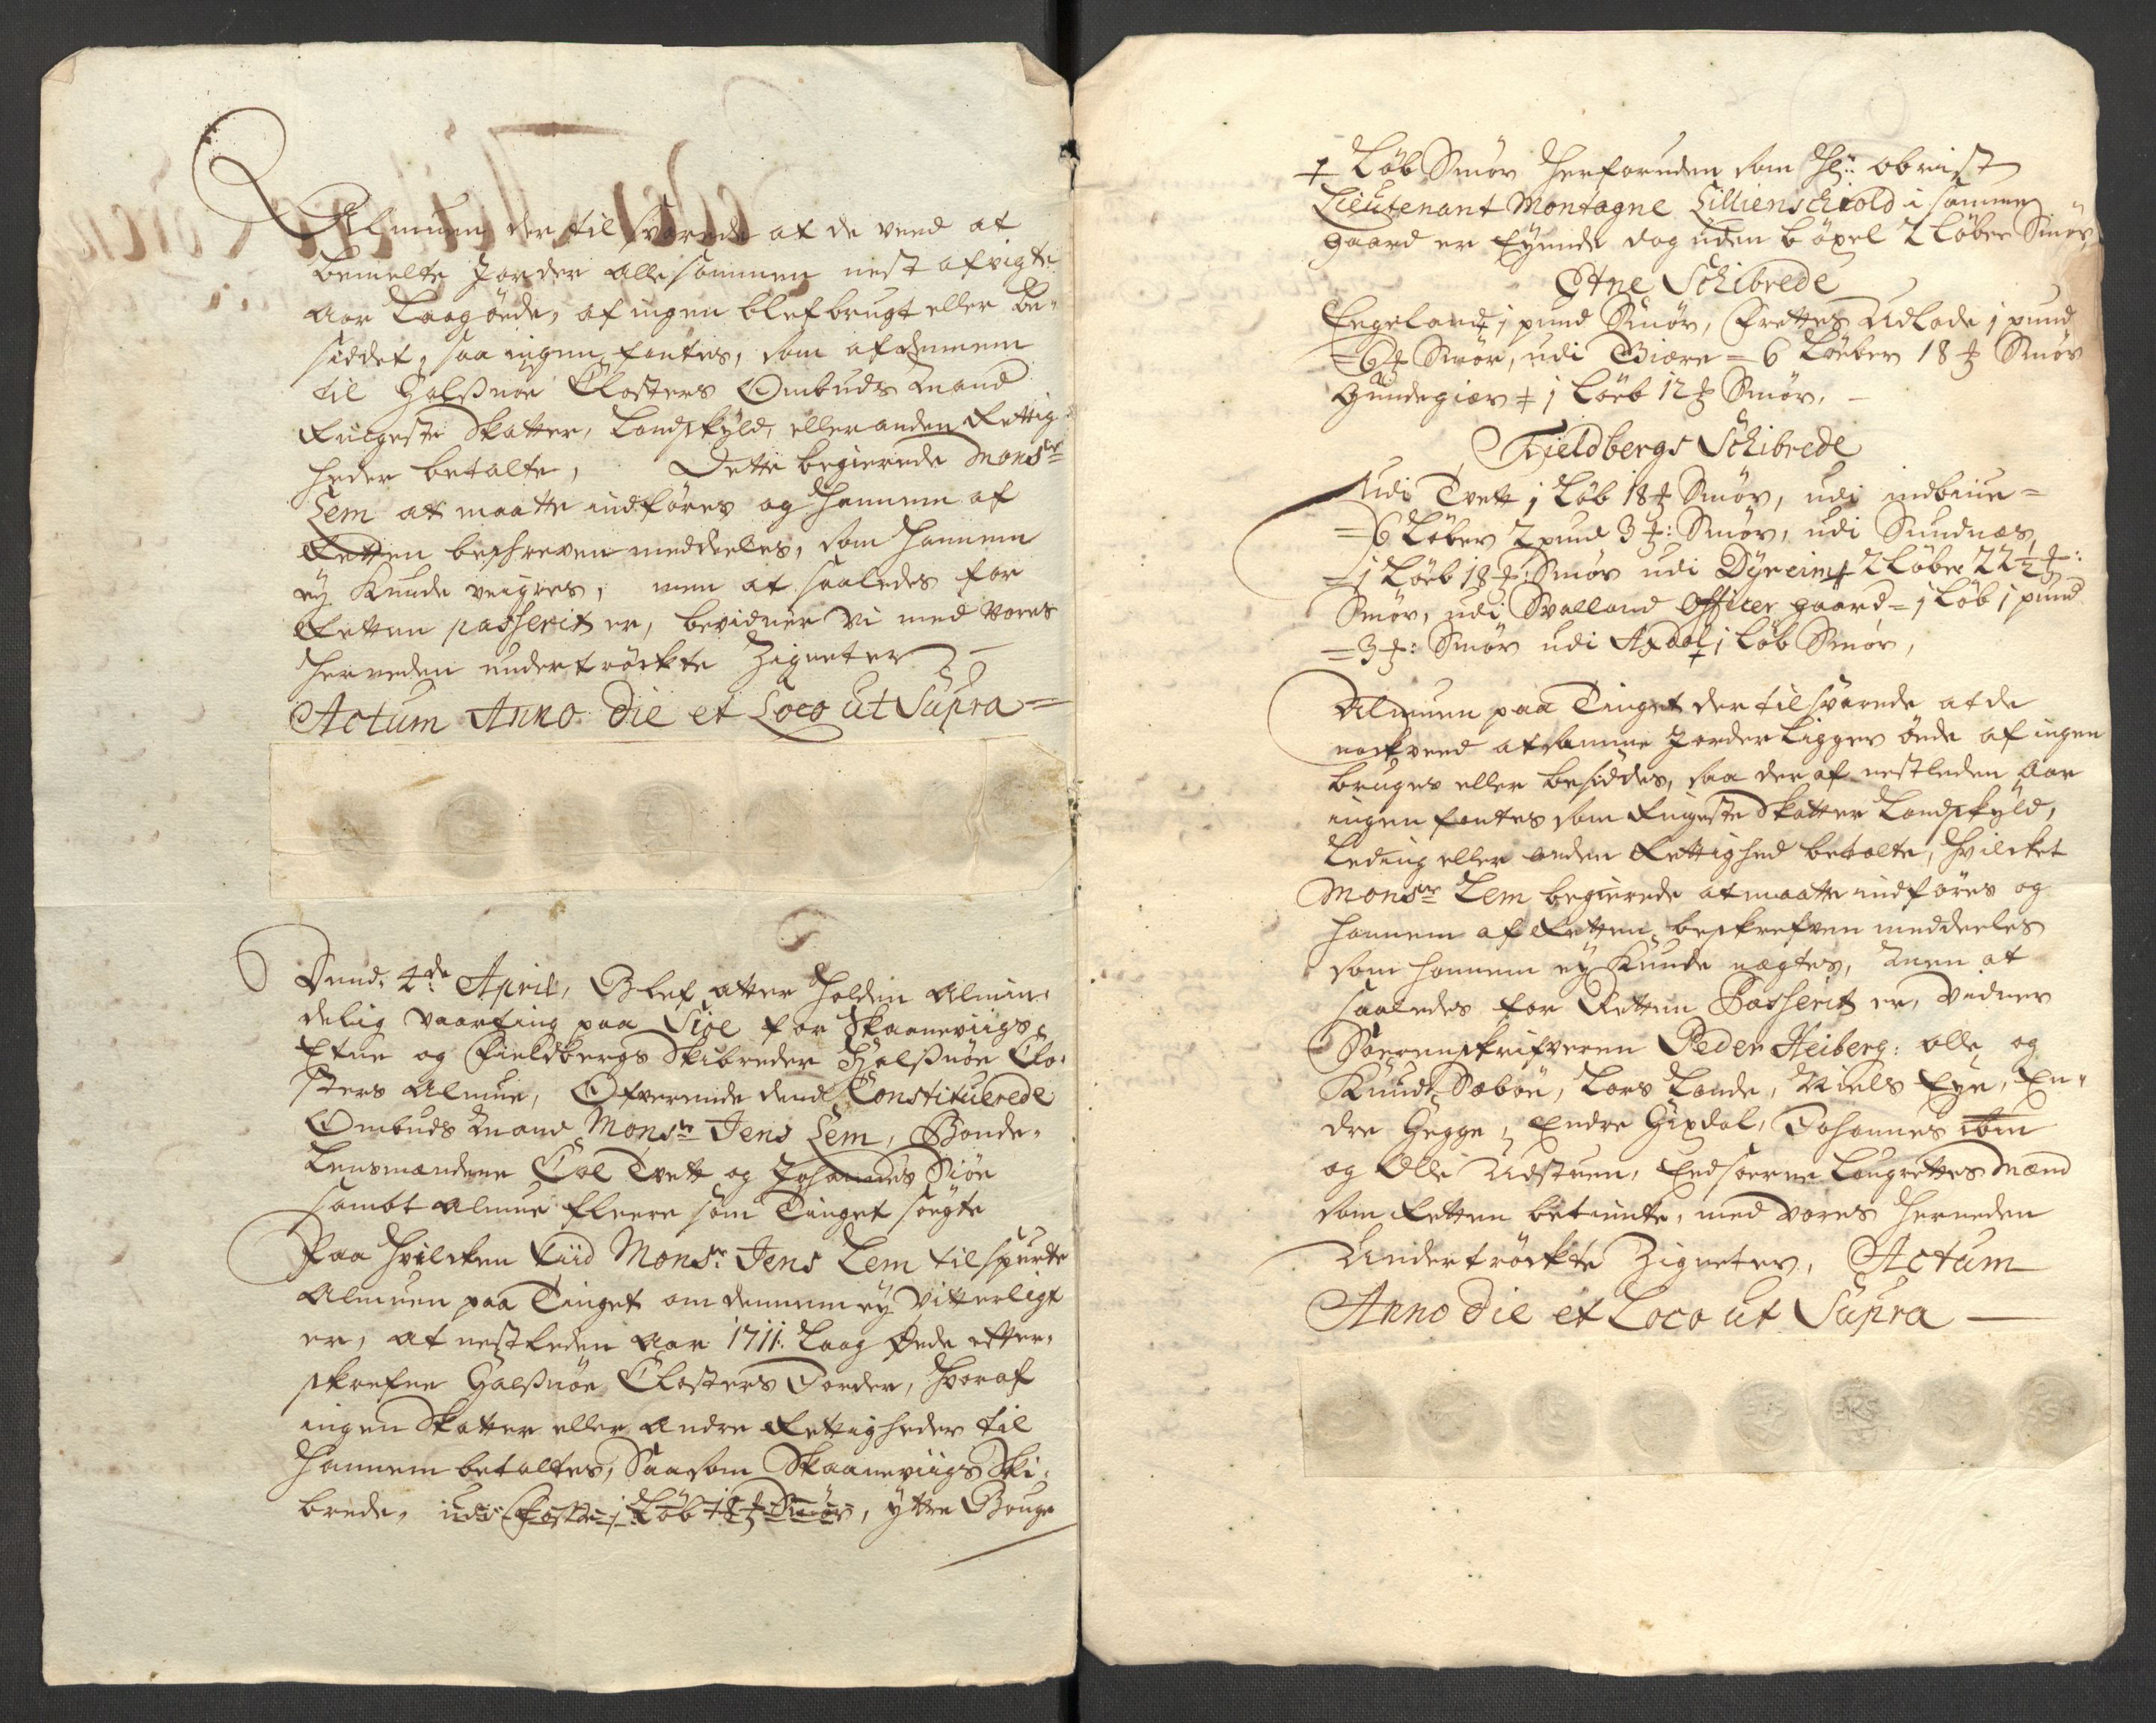 Almuen der til svarede at de veed at
bemelte Jorder alle sammen nest afvigte
Aar Laag öede, af ingen blef brugt eller be-
siddet, saa ingen fantes, som af dennem
til Halßnöe Closters Ombuds Mand
Ringeste Skatter, Landskyld, eller anden Rettig-
heder betalte, Dette begierede Monsr
Lem at maatte indföres og hannem af
Retten beschreven meddeeles, som hannem
ey Kunde veigres, men at saaledes for
Retten passerit er, bevidner Vi med vores
herneden undertröckte Zigneter
Actum Anno die et Loco ut Supra =
Dend 4de April, Blef atter Holden Almin-
delig Vaarting paa Siøe for Skaaneviigs
Etne og Fieldbergs Skibreder Halßnöe Clo-
sters Almue, Ofverværende dend Constituerede
Ombuds Mand Monsr Jens Lem, Bonde-
Lensmændene Col Tvett og Johannes Siöe
sambt Almue fleere som Tinget søgte
Paa hvilcken tiid Monsr Jens Lem tilspurte
Almuen paa Tinget om dennem ey vitterligt
er, at nestleden Aar 1711. Laag Øede efter-
skrefne Halßnöe Closters Jorder, hvoraf
ingen Skatter eller Andre Rettigheder til
hannem betaltes, Saasom Skaaneviigs Ski-
brede, udi 1 Løb 18 # Smör, ytre Bouge
1 Löb Smör herforuden som Hr: obrist
Lieutenant Montagne Lillienschiold i samme
gaard er Eyende dog uden böxel 2 Löber Smör
Etne Schibrede
Engeland 1 pund Smör, Frettes Udlode 1 pund
= 6 # Smör, udi Biære = 6 Löeber 18 # Smör
Hundegier = 1 Löeb 12 # Smör, -
Fieldbergs Schibrede
Udi Tvett 1 Löb 18 # Smör, udi indbiue =
= 6 Löber 2 pund 3 #: Smör, udi Sundnæs
= 1 Löeb 18 #: Smör udi Dyreim 2 Löber 22 1/2 #:
Smör, udi Svalland Officer gaard = 1 Löb 1 pund
= 3 #: Smör udi Axdal 1 Löb Smör,
Almuen paa Tinget der til svarede at de
nock veed at samme Jorder Ligger öede af ingen
bruges eller besiddes, saa der af nestleden Aar
ingen fantes som Ringeste Skatter Landskyld,
Leding eller anden Rettighed betalte, hvilcket
Monsr Lem begierede at maatte indføres og
hannem af Retten beskrefven meddeeles
som hannem ey Kunde nægtes, Men at
saaledes for Retten Passerit er, Vidner
Sorenskrifveren Peder Heiberg: Olle og
Knud Sæböe, Lars Lande, Niels Eye, En-
dre Hegge, Endre Gixdal, Johannes ibm
og Olle Udstuen, Eedsorne Laugrettes Mænd
som Retten betiente, med vores herneden
Undertröckte Zigneter, Actum
Anno die et Loco ut Supra -